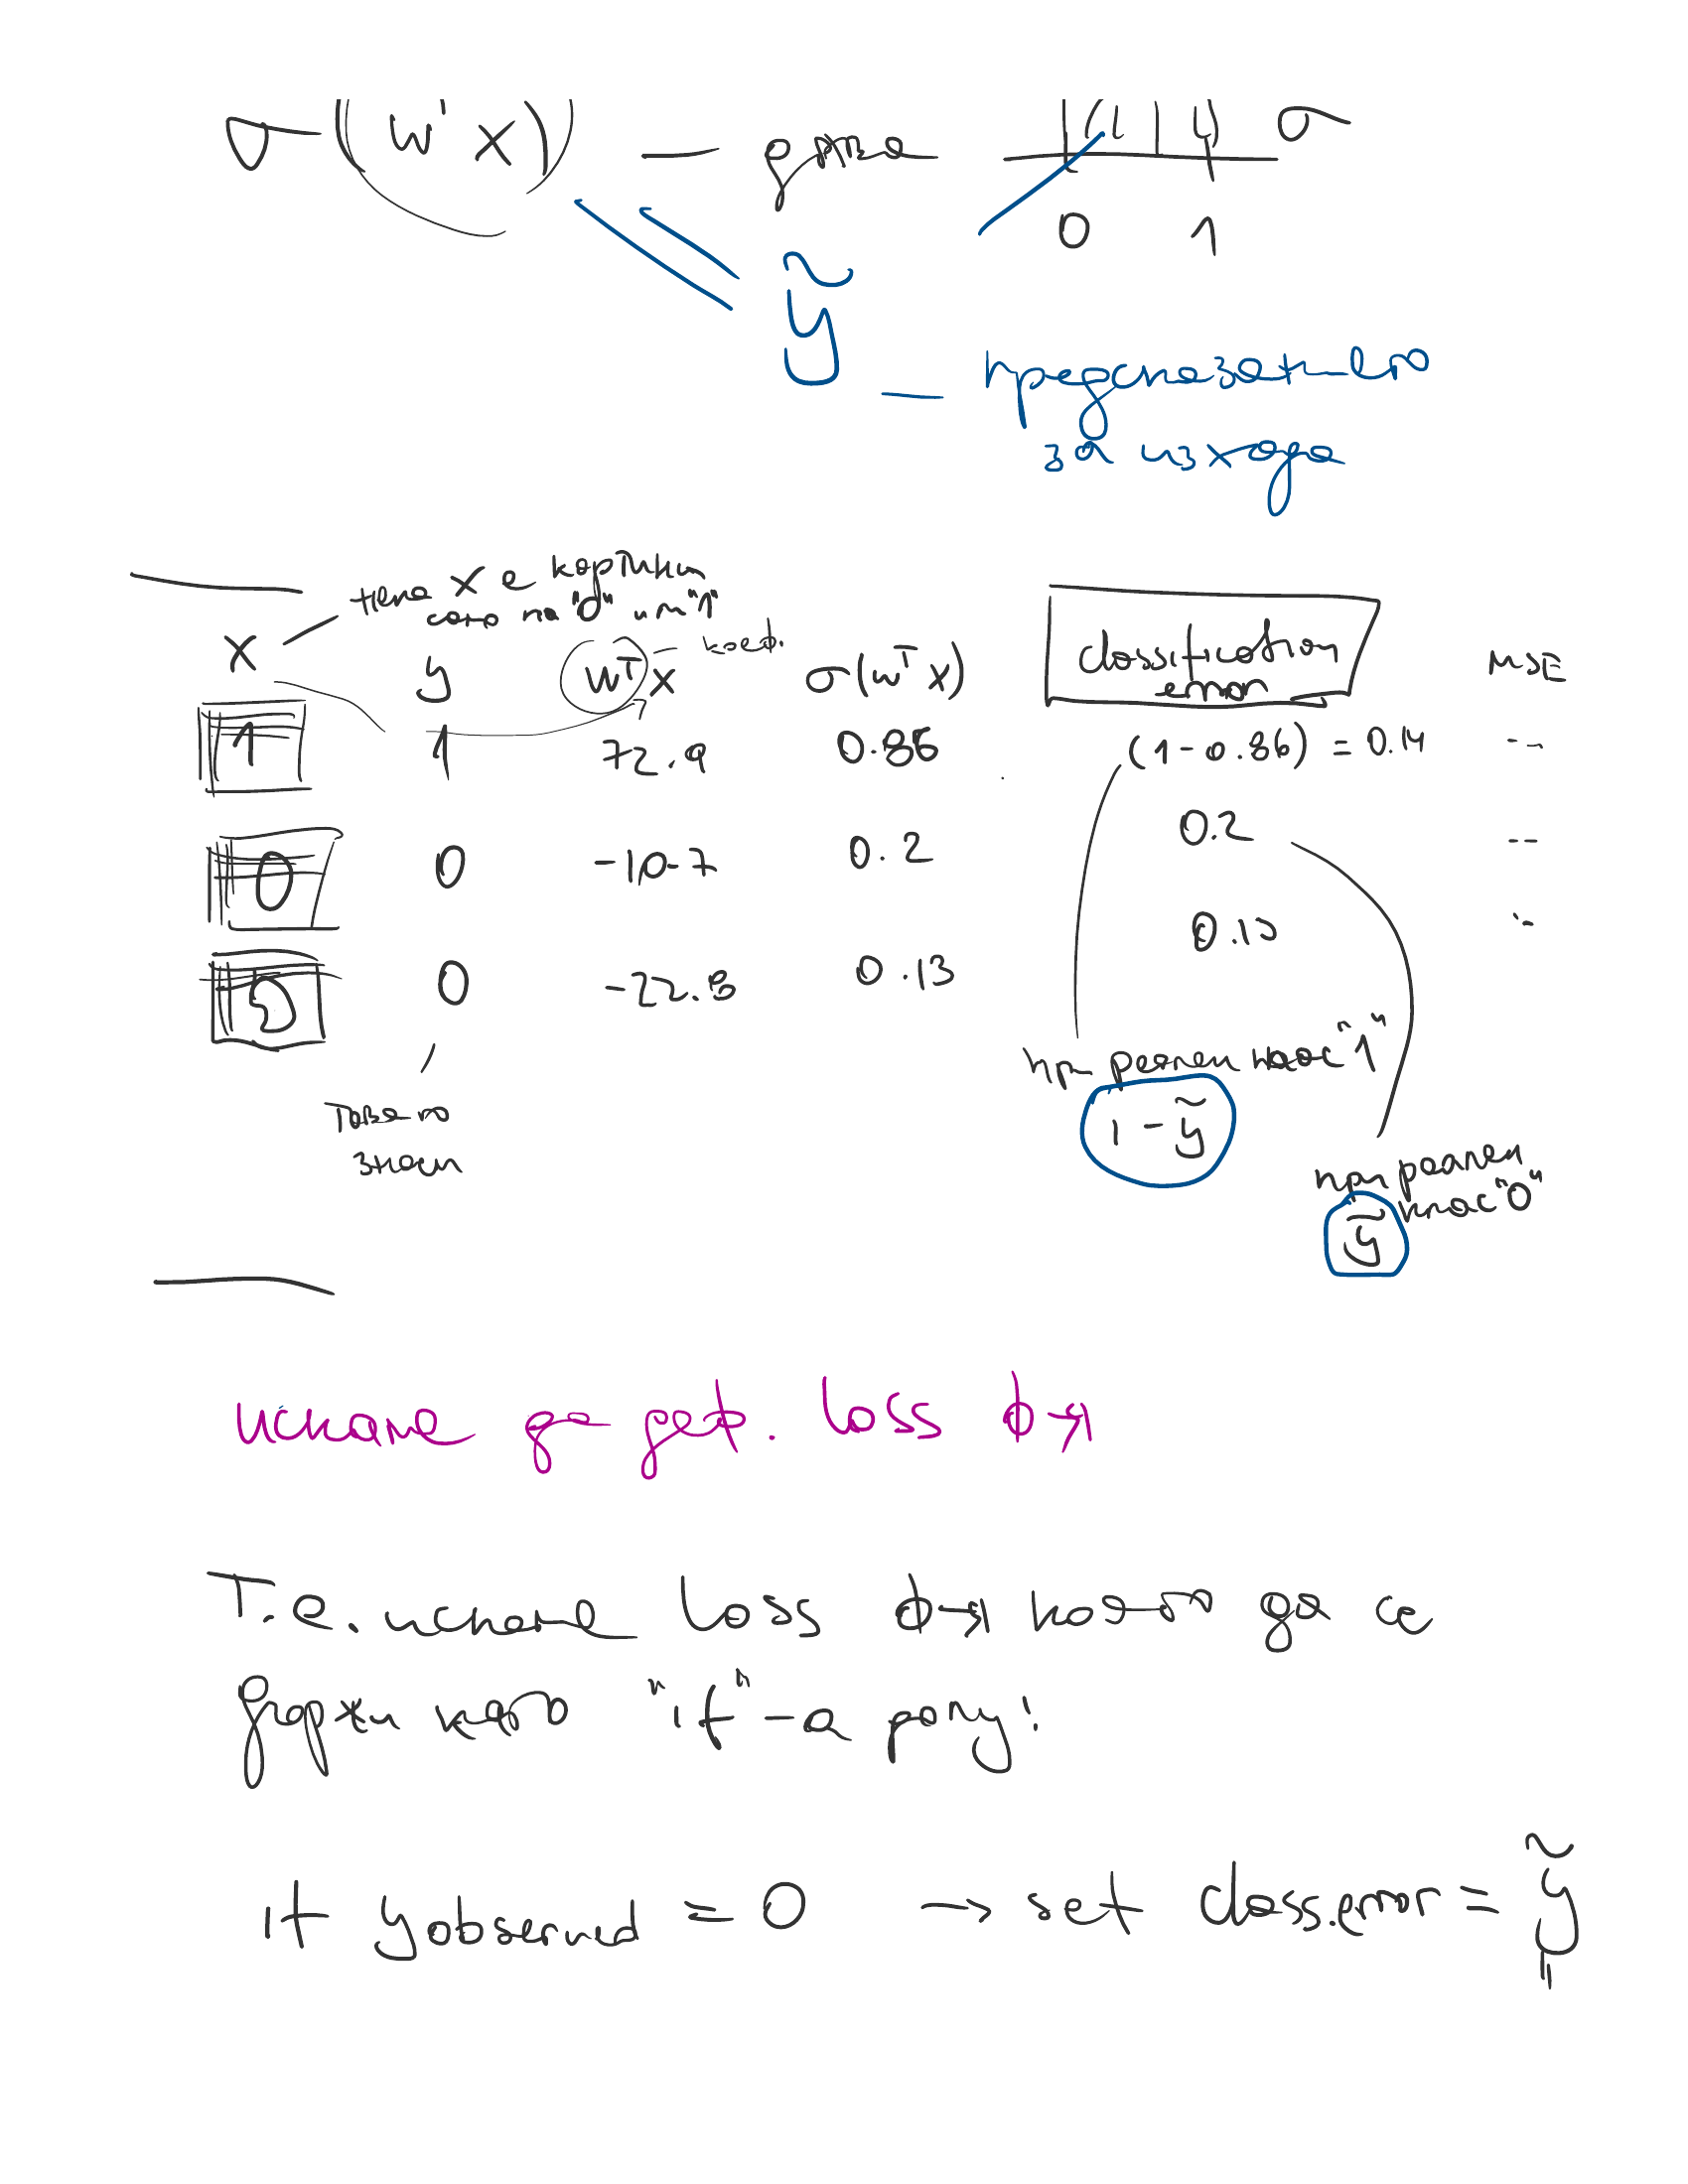 σ(wᵀx) — σ
0 1
ỹ — предсказанието
за изхода
нека x е картинки
само на "0" или "1"
x y wᵀx коеф. σ(wᵀx) classification error MSE
1 1 72.9 0.86 (1-0.86) = 0.14 --
0 0 -10.7 0.2 0.2 --
0 0 -22.8 0.13 0.13 --
при реален клас "1"
1 - ỹ
Това го
знаем
при реален
клас "0"
ỹ
искаме да деф. loss ф-я
Т.е. искаме loss ф-я която да се
държи като "if"-а долу:
if y observed = 0 → set class.error = ỹ